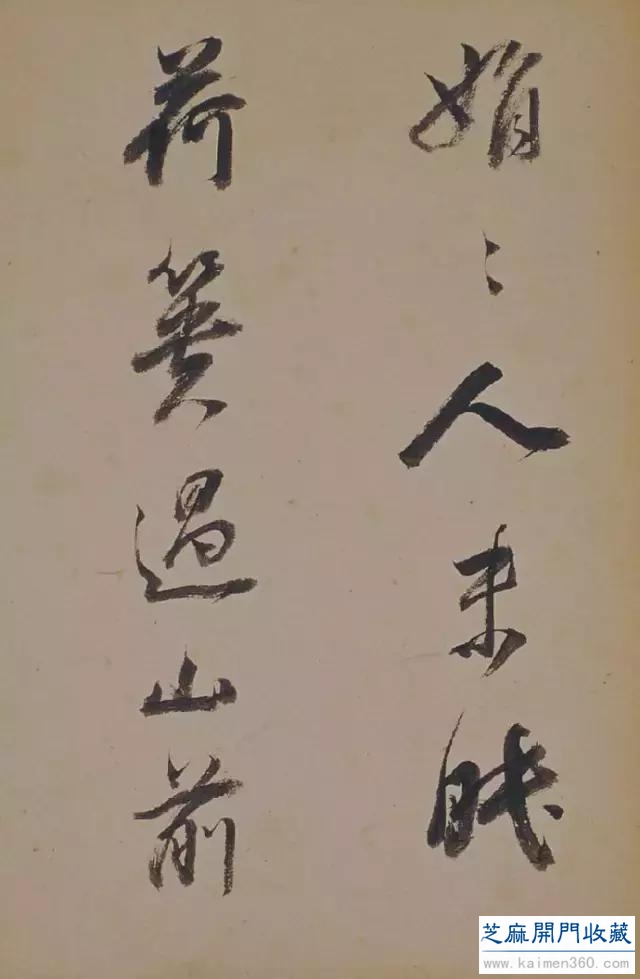 娟〻人未眠
荷蒉過山前
芝麻開門收藏
www.kaimen360.com